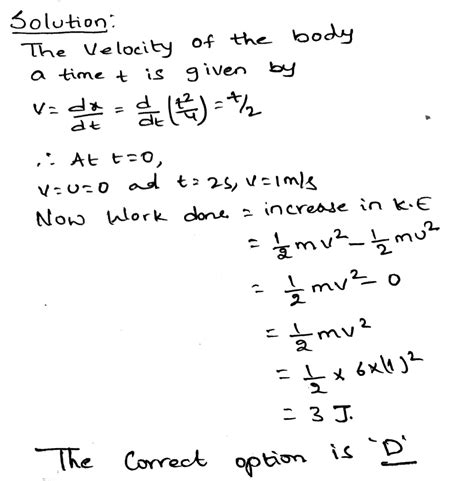 Solution:
The Velocity of the body
a time t is given by
V = dx/dt = d/dt (t²/4) = t/2
∴ At t=0,
v=u=0 ad t=2s, v=1m/s
Now Work done = increase in K.E
= 1/2 mv² - 1/2 mu²
= 1/2 mv² - 0
= 1/2 mv²
= 1/2 × 6×(1)²
= 3 J.
The Correct option is 'D'